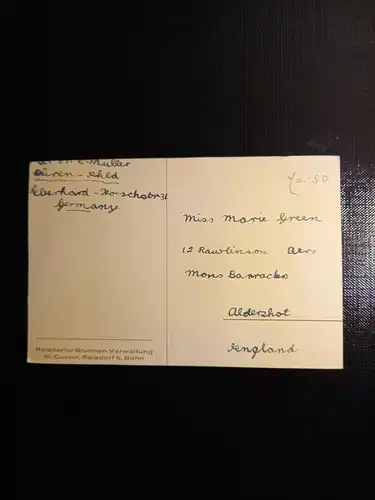 Müller
Düren - Rhld
Eberhard - Hoeschstr 31
Germany
Miss Marie Green
12 Rawlinson Qers
Mons Barracks
Aldershot
England
Roisdorfer Brunnen-Verwaltung
W. Custor, Roisdorf b. Bonn